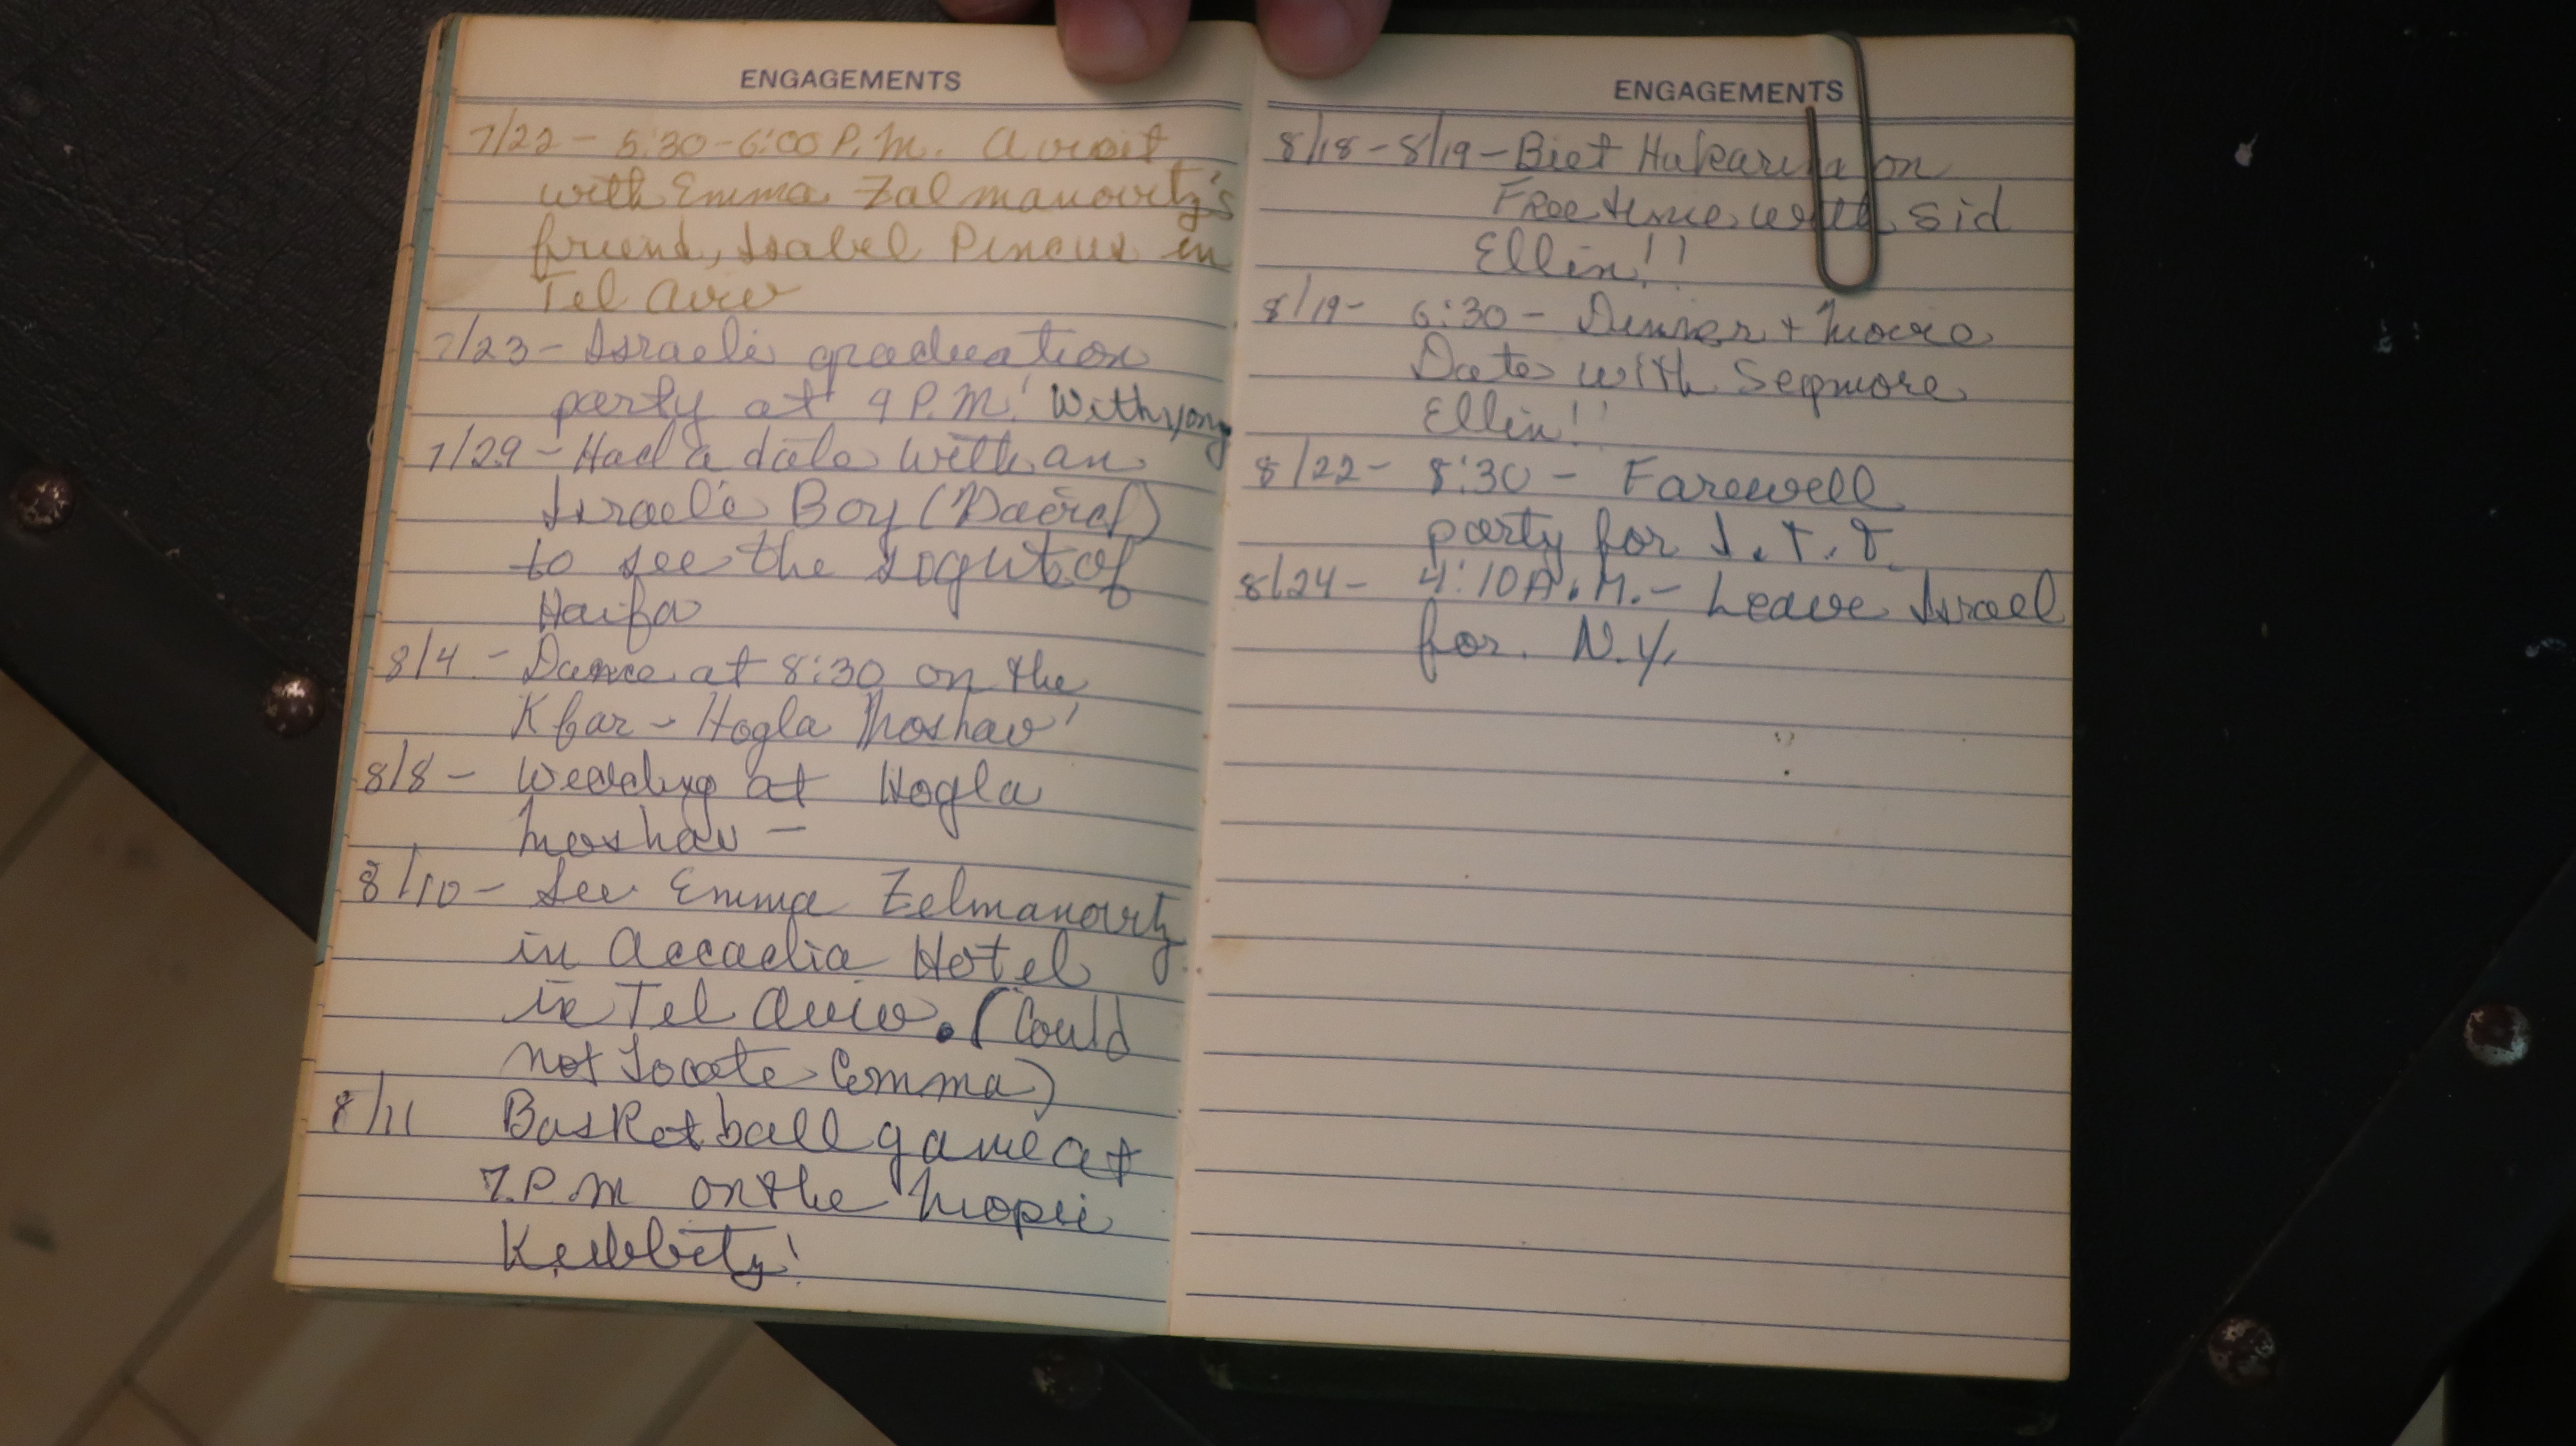 ENGAGEMENTS
7/22 - 5:30-6:00 P.M. A visit
with Emma Zalmanovitz's
friend, Isabel Pincus in
Tel Aviv
7/23 - Israeli graduation
party at 9 P.M.! With yong
7/29 - Had a date with an
Israeli Boy (David)
to see the sights of
Haifa
8/4 - Dance at 8:30 on the
Kfar - Hogla Moshav!
8/8 - Wedding at Hogla
Moshav -
8/10 - See Emma Zelmanovitz
in Accadia Hotel
in Tel Aviv. (Could
not Locate Emma)
8/11 Basketball game at
7 P.M on the
Kibbutz!
ENGAGEMENTS
8/18 - 8/19 - Biet Hakarem on
Free time with Sid
Ellin!!
8/19 - 6:30 - Dinner + Movie
Date with Seymore
Ellin!!
8/22 - 8:30 - Farewell
party for
8/24 - 4:10 A.M. - Leave Israel
for. N.Y.